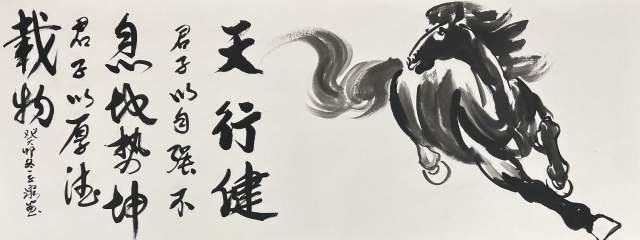 天行健
君子以自强不
息地势坤
君子以厚德
载物